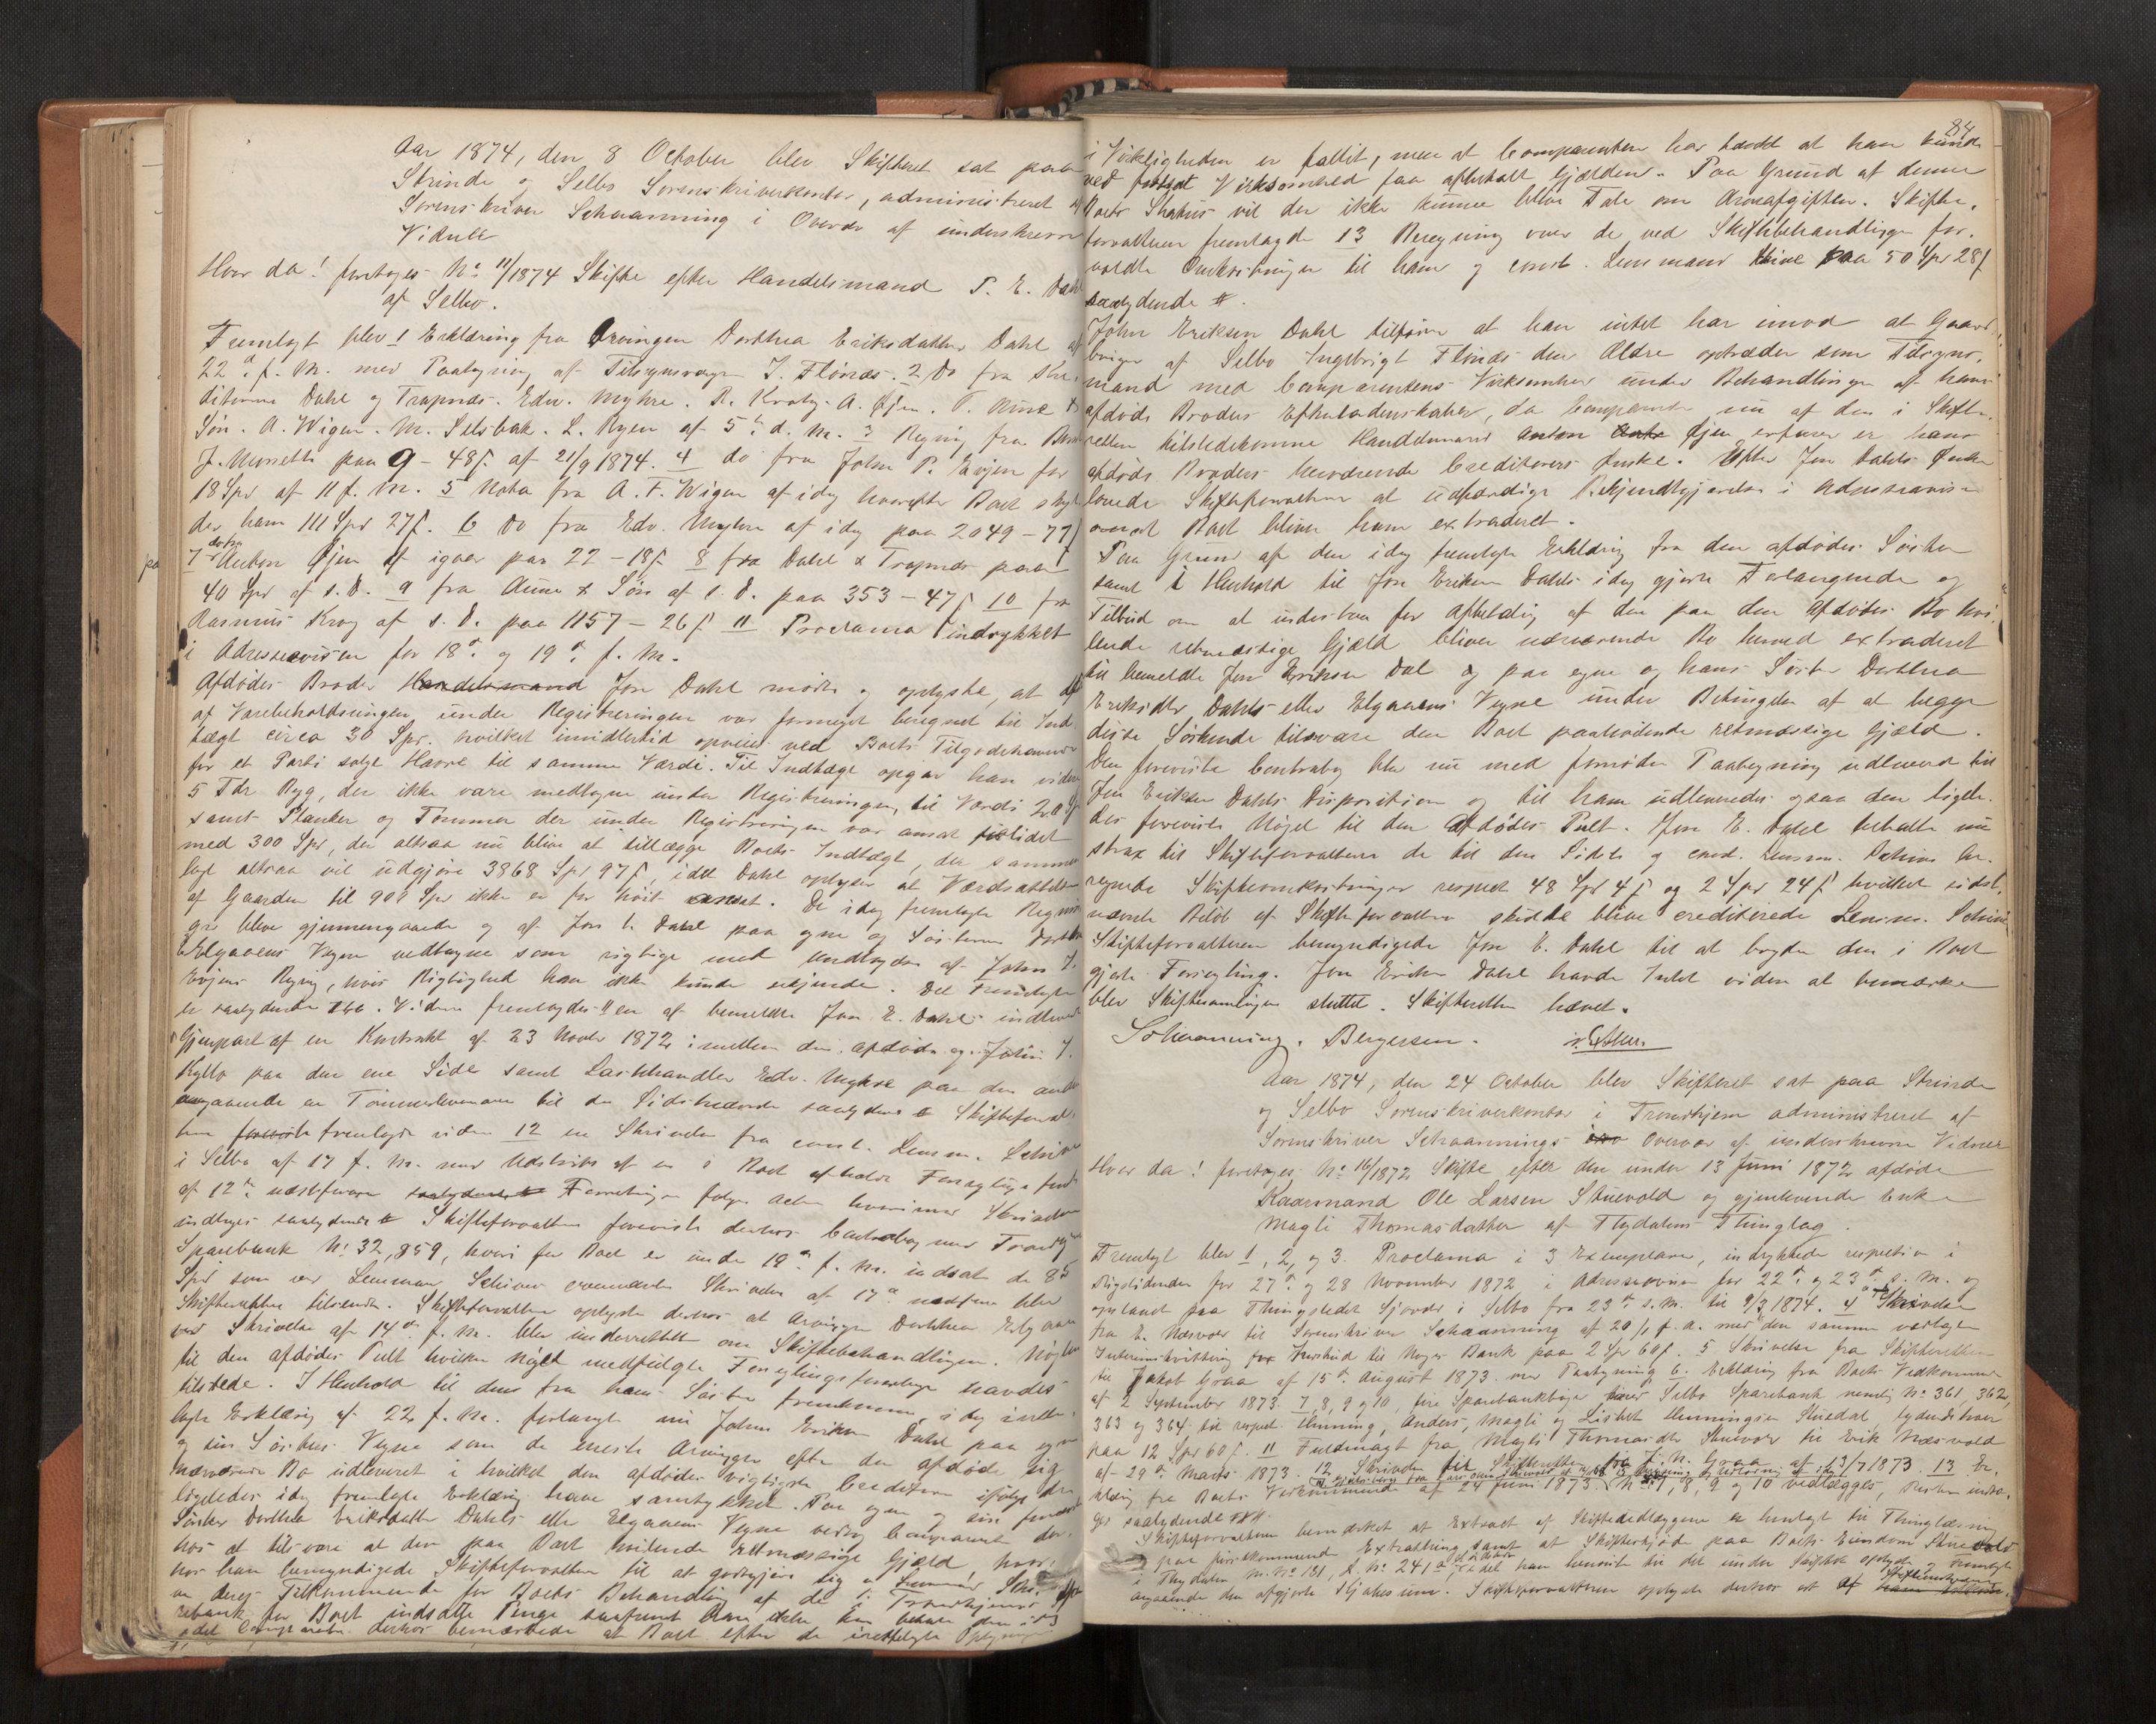 Aar 1874, den 8 October blev Skifteret sat paa
Strinde og Selbo Sorenskriverkontor, administreret af
Sorenskriver Schaanning i Overvær af underskrevne
Vidner
Hvor da! foretoges No 11/1874 Skifte efter Handelsmand P. E. Dahl
af Selbo.
Fremlagt blev 1 Erklæring fra Arvingen Dorthea Eriksdatter Dahl af
22d f. M. med Paategning af Tilsynsværge I. Flönæs. 2 Do fra Kre-
ditorerne Dahl og Trapnæs. Edv. Myhre. R. Krog. A. Øjen. T. Aune &
Søn. A. Wigen. M. Selsbak. L. Ryen af 5te d. M. 3 Regning fra
J. Morseth paa 9 - 48 f. af 21/9 1874. 4 do fra John P. Evjen for
18 Spd af 11 f. M. 5 Nota fra A. F. Wigen af idag hvorefter Boet skyl-
der ham 111 Spd 27 f. 6 Do fra Edv. Myhre af idag paa 2049 - 77 f
7 do fra Anton Øjen af igaar paa 22 - 18 f 8 fra Dahl & Trapnæs paa
40 Spd af s. D. 9 fra Aune & Søn af s. D. paa 353 - 47 f 10 fra
Rasmus Krog af s. D. paa 1157 - 26 f 11 Proclama indrykket
i Adresseavisen for 18de og 19de f. M.
Afdødes Broder Handelsmand Jon Dahl mødte og oplyste, at
af Varebeholdningen under Registreringen var formeget beregnet til Ind-
tægt circa 30 Spd. hvilket imidlertid opveies ved Boets Tilgodehavende
for et Parti solgt Havre til samme Værdi. Til Indtægt opgav han viden
5 Tdr Byg, der ikke vare medtagne under Registreringen, til Værdi 20 Spd
samt Planker og Tømmer der under Registreringen var ansat
med 300 Spd, der altsaa nu bliver at tillægge Boets Indtægt, der sammen-
lagt altsaa vil udgjøre 3868 Spd 97 f, idet Dahl oplyser at Værdsættelsen
af Gaarden til 900 Spd ikke er for høit ansat. De idag fremlagte Regnin-
ger blev gjennemgaaede og af Jon E. Dahl paa egne og Søsteren Dorthea
Elgaaens Vegne vedtagne som rigtige med Undtagelse af John P.
Evjens Regning, hvis Rigtighed han ikke kunde erkjende. Det Fremlagte
er saalydende. Viden fremlagdes en af bemeldte Jon E. Dahl indleveret
Gjenpart af en Kontrakt af 23 Novbr 1872 imellem den afdøde og John J.
Kyllo paa den ene Side samt Lasthandler Edv. Myhre paa den anden
angaaende en Tømmerleverance til den Sidstnævnte saalydende Skifteforval-
teren forevist fremlagde viden 12 en Skrivelse fra const. Lensm. Schive
i Selbo af 17 f. M. med Udskrift af en i Boet afholdt Forseglingsforr.
af 12te næstforan saalydende Forretningen følger Acten hvorimod Skrivelsen
indtages saalydende Skifteforvalteren foreviste derhos Contrabog med Trondhj.
Sparebank No 32,859, hvori for Boet er under 19de f. M. indsat de 85
Spd som ved Lensmand Schives ovennævnte Skrivelse af 17de næstforan blev
Skifteretten tilsendt. Skifteforvalteren oplyste derhos at Arvingen Dorthea Elgaaen
ved Skrivelse af 14de f. M. blev underrettet om Skiftebehandlingen. Nøglen
til den afdødes Pult hvilken Nøgel medfulgte Forseglingsforretningen havdes
tilstede. I Henhold til den fra hans Søster fremkomne, i dag frem-
lagte Erklæring af 22 f. M. forlangte nu John Eriksen Dahl paa egne
og sin Søsters Vegne som de eneste Arvinger efter den afdøde sig
nærværende Bo udleveret i hvilket den afdødes vigtigste Creditorer ifølge den
ligeledes idag fremlagte Erklæring have samtykket. Paa egne og sin fornævnte
Søster Dorthea Eriksdatter Dahls eller Elgaaens Vegne vedtog Comparenten der-
hos at tilsvare al den paa Boet hvilende retmæssige Gjæld hvor-
hos han bemyndigede Skifteforvalteren til at godtgjøre sig og Lensmand Schive
deres Tilkommende for Boets Behandling af de i Trondhjems Spa-
rebank for Boet indsatte Penge saafremt han ikke kan betale dem idag
idet Comparenten derhos bemærkede at Boet efter de indhentede Oplysninger
84
i Virkeligheden er fallit, men at Comparenten har tænkt at han kunde
ved fortsat Virksomhed faa afbetalt Gjælden. Paa Grund af denne
Boets Status vil der ikke kunne blive Tale om Arveafgiften. Skifte-
forvalteren fremlagde 13 Beregning over de ved Skiftebehandlingen for-
voldte Omkostninger til ham og const. Lensmand Schive paa 50 Spd 28 f
saalydende.
John Eriksen Dahl tilføier at han intet har imod at Gaard-
bruger af Selbo Ingebrigt Flönæs den Ældre optræder som Tilsyns-
mand med Comparentens Virksomhed under Behandlingen af hans
afdøde Broders Efterladenskaber, da Comparenten nu af den i Skifte-
retten tilstedekomne Handelsmand Anton Øjen erfarer er hans
afdøde Broders herværende Creditorers Ønske. Efter Jon Dahls Ønske
lovede Skifteforvalteren at udfærdige Bekjendtgjørelse i Adresseavisen
om at Boet bliver ham extraderet.
Paa Grund af den idag fremlagte Erklæring fra den afdødes Søster
samt i Henhold til Jon Eriksen Dahls idag gjorte Forlangende og
Tilbud om at indestaa for Afbetaling af den paa den afdødes Bo hvi-
lende retmæssige Gjæld bliver nærværende Bo herved extraderet
til bemeldte Jon Eriksen Dal og paa egne og hans Søster Dorthea
Eriksdtr Dahls eller Elgaaens Vegne under Betingelse af at begge
disse Søskende tilsvare den Boet paahvilende retmæssige Gjæld.
Den foreviste Contrabog blev nu med fornøden Paategning udleveret til
Jon Eriksen Dahls Disposition og til ham udleveredes ogsaa den ligele-
des foreviste Nøgel til den Afdødes Pult. Jon E. Dahl betalte nu
strax til Skifteforvalteren de til den Sidste og const. Lensm. Schive be-
regnede Skifteomkostninger respect 48 Spd 4 f og 2 Spd 24 f hvilket sidst-
nævnte Beløb af Skifteforvalteren skulde blive crediterede Lensm. Schive
Skifteforvalteren bemyndigede Jon E. Dahl til at bryde den i Boet
gjorte Forsegling. Jon Eriksen Dahl havde Intet viden at bemærke
blev Skiftesamlingen sluttet. Skifteretten hævet.
Schaanning. Bergersen.
Aar 1874, den 24 October blev Skifteret sat paa Strinde
og Selbo Sorenskriverkontor i Trondhjem administreret af
Sorenskriver Schaannings Overvær af underskrevne Vidner
Hvor da! foretoges No 16/1872 Skifte efter den under 13 Juni 1872 afdøde
Kaarmand Ole Larsen Stuevold og gjenlevende Enke
Magli Thomasdatter af Thydalens Thinglag.
Fremlagt blev 1, 2, og 3. Proclama i 3 Exemplarer, indrykkede respective i
Rigstidenden for 27de og 28 November 1872 i Adresseavisen for 22de og 23de s. M. og
opslaaet paa Thingstedet i Selbo fra 23de s. M. til 9/3 1874. 4 Skrivelse
fra E. Næsvold til Sorenskriver Schaanning af 20/1 f. A. med den samme vedlagte
Interimskvittering for Indskud til Norges Bank paa 2 Spd 60 f. 5 Skrivelse fra Skifteretten
til Jakob Graa af 15de August 1873 med Paategning 6. Erklæring fra Boets Vedkommende
af 2 September 1873. 7, 8, 9 og 10, fire Sparebankbøger med Selbo Sparebank nemlig No 361, 362,
363 og 364 til respect. Henning, Anders, Magli og Lisbet Henningsen Stuedal, lydende hver
paa 12 Spd 60 f. 11 Fuldmagt fra Magli Thomasdtr Stuevold til Erik Næsvold
af 29de Marts 1873. 12 Skrivelse til Skifteretten fra J. N. Graa af 13/7 1873. 13 Er-
klæring fra Boets Vedkommende af 24 Juni 1873. No 7, 8, 9 og 10 vedlægges, Resten indta-
ges saalydende
Skifteforvalteren bemærket at Extract af Skifteudlæggene er henlagt til Thinglæsning
paa forekommende Extrathing samt at Skifteskjøde paa Boets Eiendom Stuevold
i Thydalen M. No 181, L. No 241 idet han henviste til det under Skiftet oplyste og fremlagte
angaaende den afgjorte Skjødesum. Skifteforvalteren oplyste derhos at af